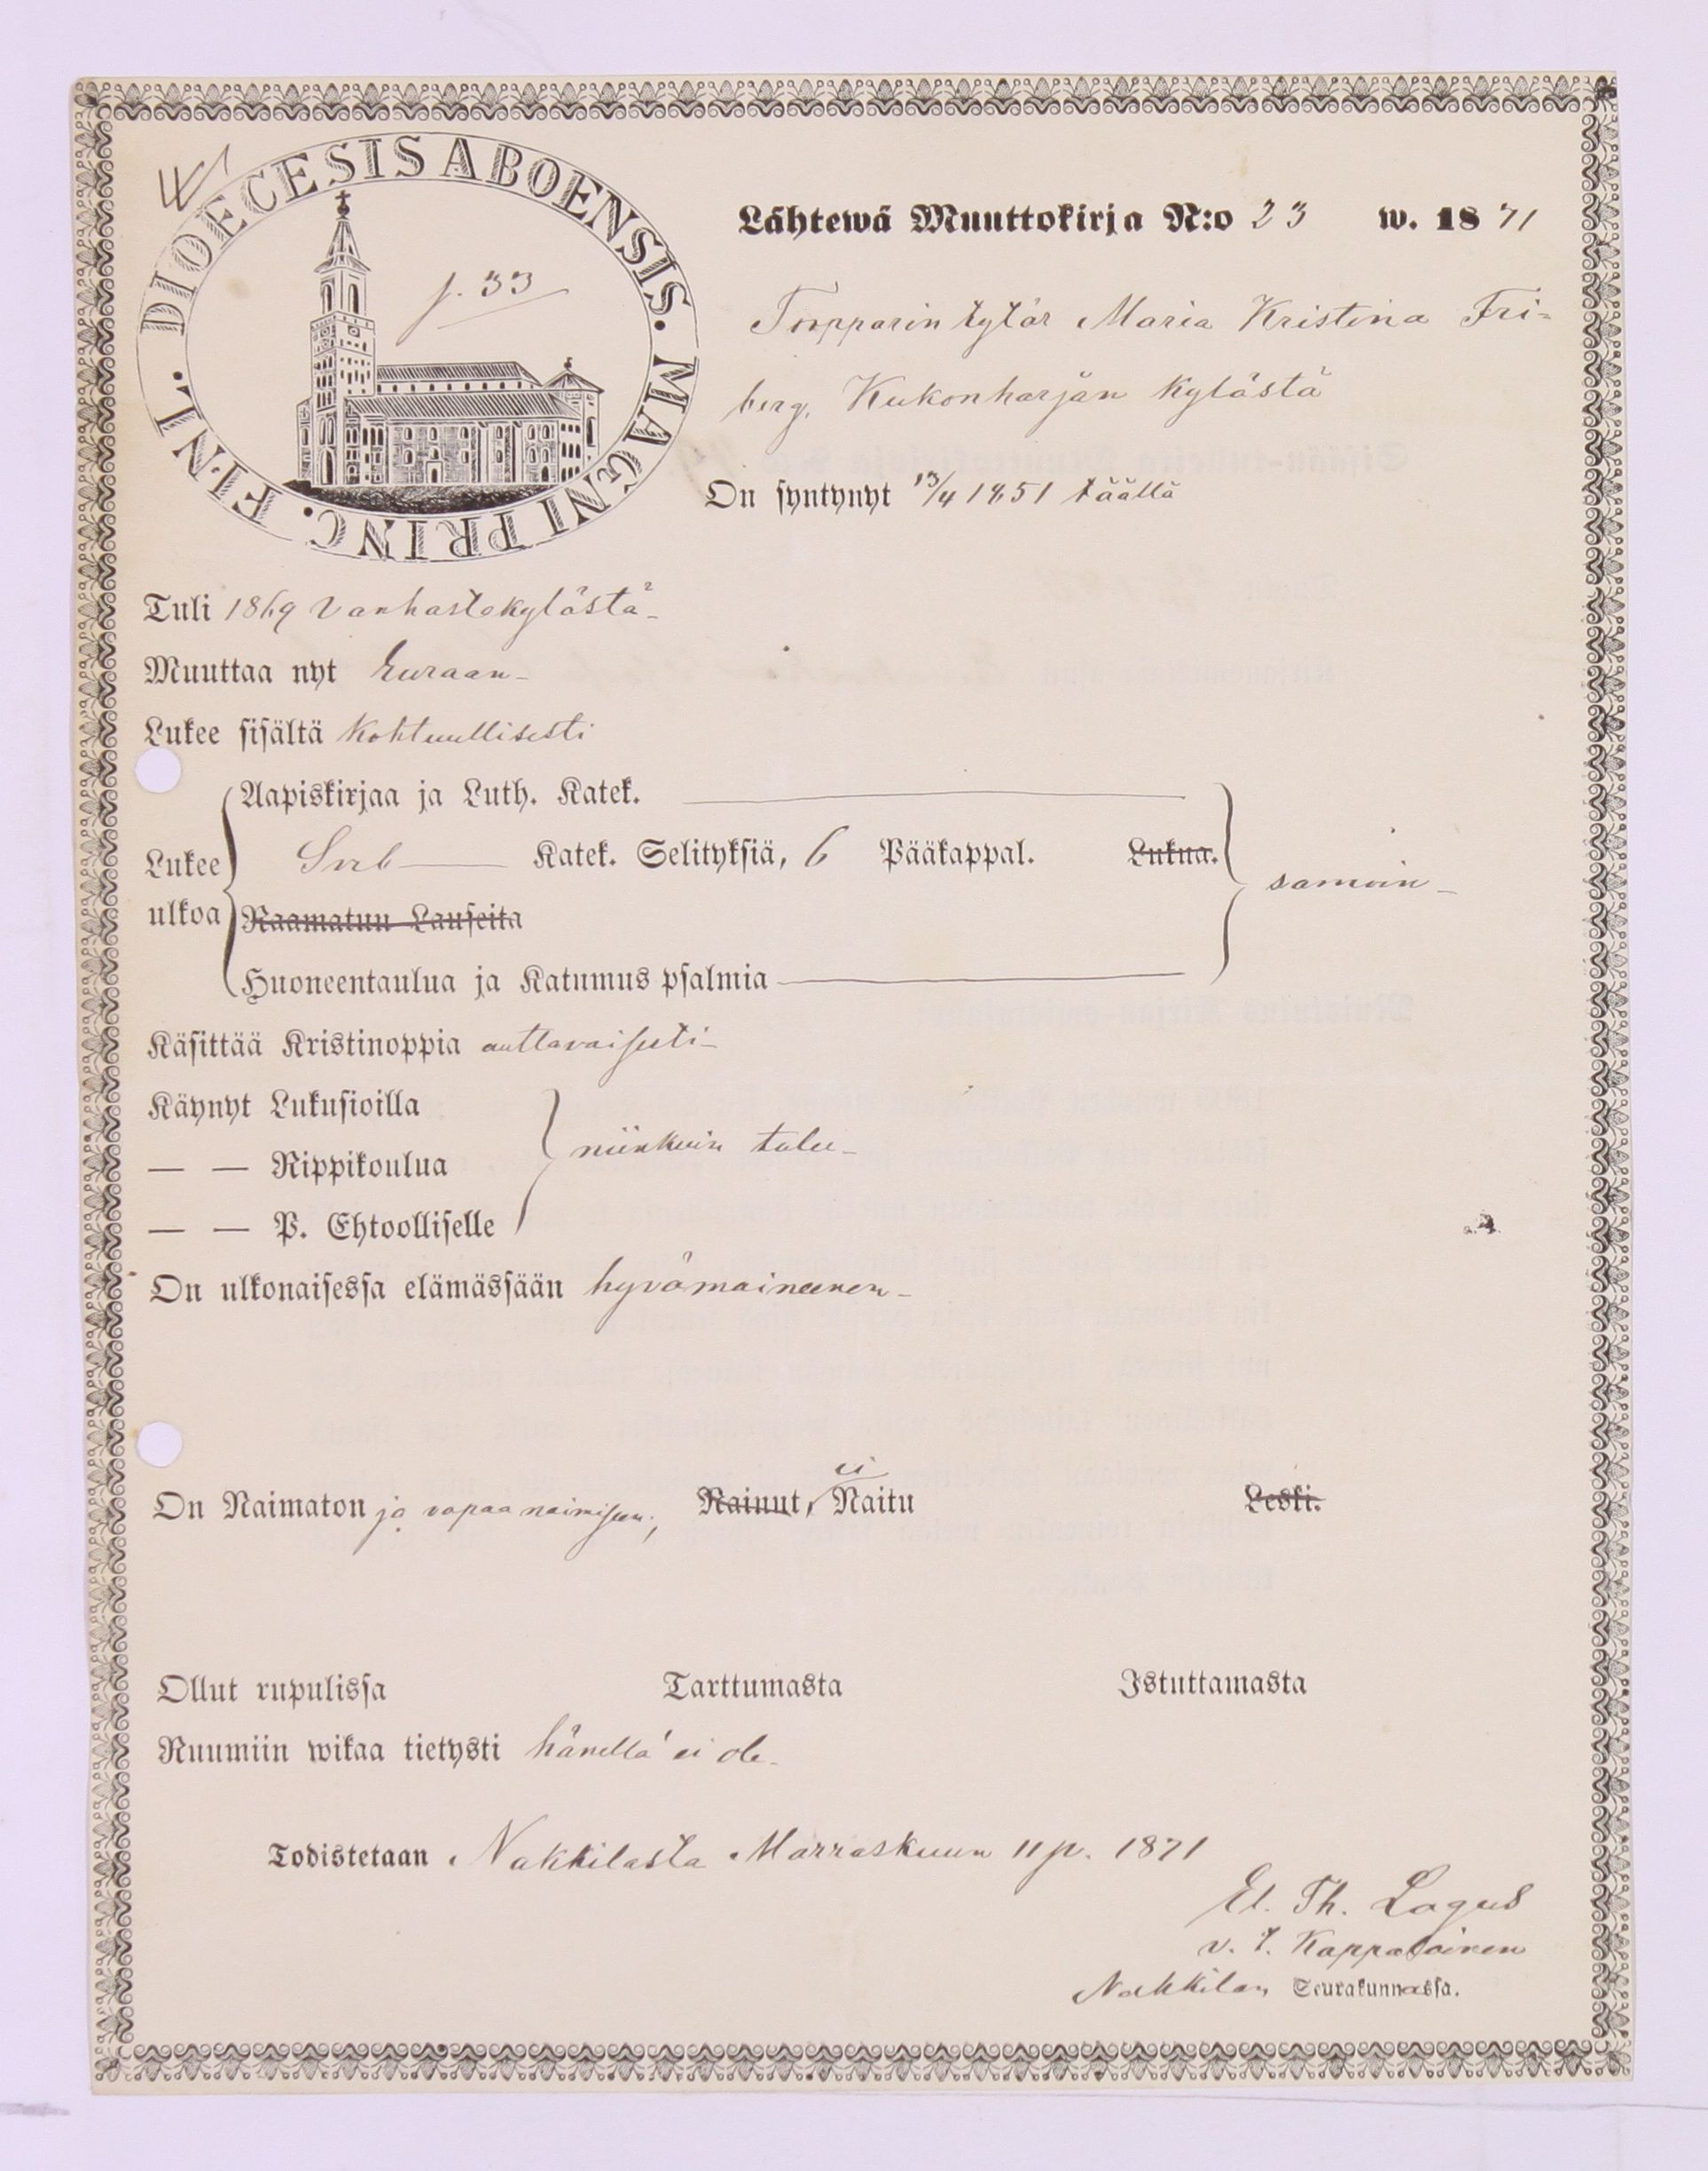 DIOECESIS ABOENSIS. MAGNI PRINC. FINL.
p. 33
Lähtewä Muuttokirja N:o 23 w. 1871
Torpparin tytär Maria Kristina Fri-
berg, Kukonharjan kylästä
On syntynyt 13/4 1851 täällä
Tuli 1869 Vanhastakylästä
Muuttaa nyt Euraan
Lukee sisältä kohtuullisesti
Aapiskirjaa ja Luth. Katek.
Lukee Sveb Katek. Selityksiä, 6 Pääkappal. Lukua. samoin
ulkoa Raamatun Lauseita
Huoneentaulua ja Katumus psalmia
Käsittää Kristinoppia auttavaisesti
Käynyt Lukusioilla
— — Rippikoulua niinkuin tulee
— — P. Ehtoolliselle
On ulkonaisessa elämässään hyvämaineenen
On Naimaton ja vapaa naimiseen, Nainut, ei Naitu Leski.
Ollut rupulissa Tarttumasta Istuttamasta
Ruumiin wikaa tietysti hänellä ei ole
Todistetaan Nakkilasta Marraskuun 11 p. 1871
El. Th. Lagus
v. t. Kappalainen
Nakkilan Seurakunnassa.